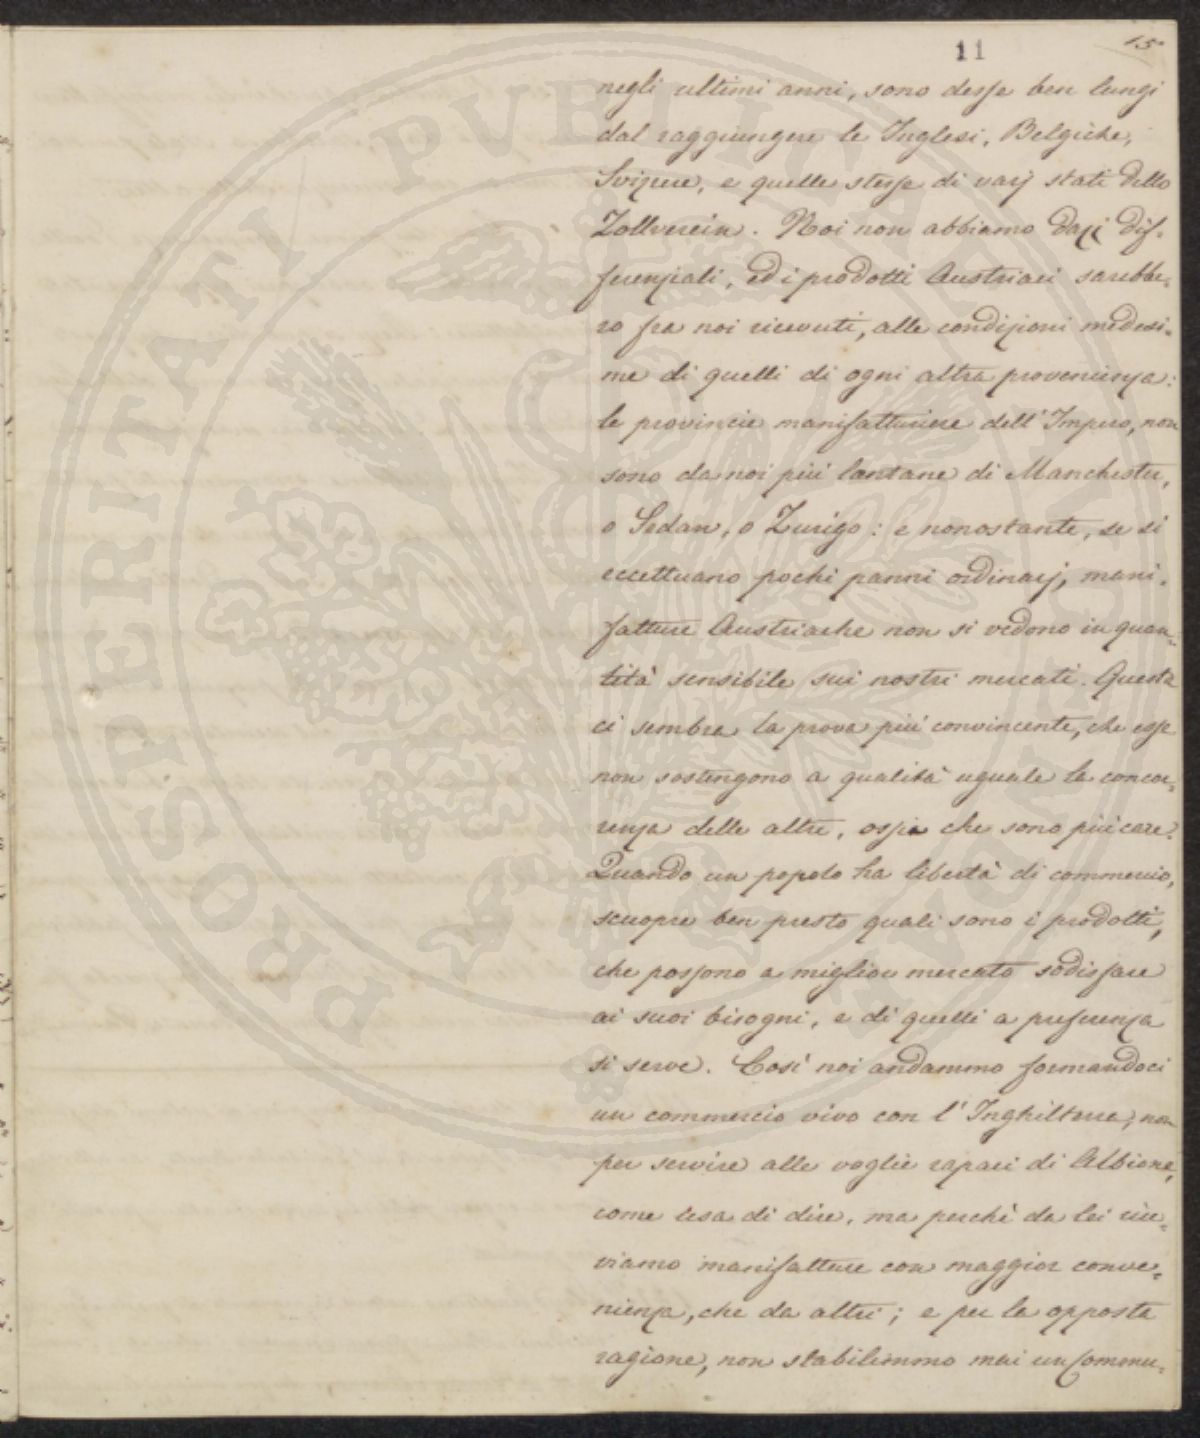 11
15.
negli ultimi anni, sono desse ben lungi
dal raggiungere le Inglesi, Belgiche,
Svizzere, e quelle stesse di varj stati dello
Zollverein. Noi non abbiamo Dazj dif-
ferenziali, ed i prodotti Austriaci sarebbe-
ro fra noi ricevuti, alle condizioni medesi-
me di quelli di ogni altra provenienza:
le provincie manifatturiere dell'Impero, non
sono da noi più lontane di Manchester,
o Sedan, o Zurigo: e nonostante, se si
eccettuano pochi panni ordinarj, mani-
fatture Austriache non si vedono in quan-
tità sensibile sui nostri mercati. Questa
ci sembra la prova più convincente, che esse
non sostengono a qualità uguale la concor-
renza delle altre, ossia che sono più care.
Quando un popolo ha libertà di commercio,
scuopre ben presto quali sono i prodotti,
che possono a miglior mercato sodisfare
ai suoi bisogni, e di quelli a preferenza
si serve. Così noi andammo formandoci
un commercio vivo con l'Inghilterra, non
per servire alle voglie rapaci di Albione,
come usa di dire, ma perchè da lei rice-
viamo manifatture con maggior conve-
nienza, che da altri; e per la opposta
ragione, non stabilimmo mai un Commer-
PROSPERITATI PUBLICAE